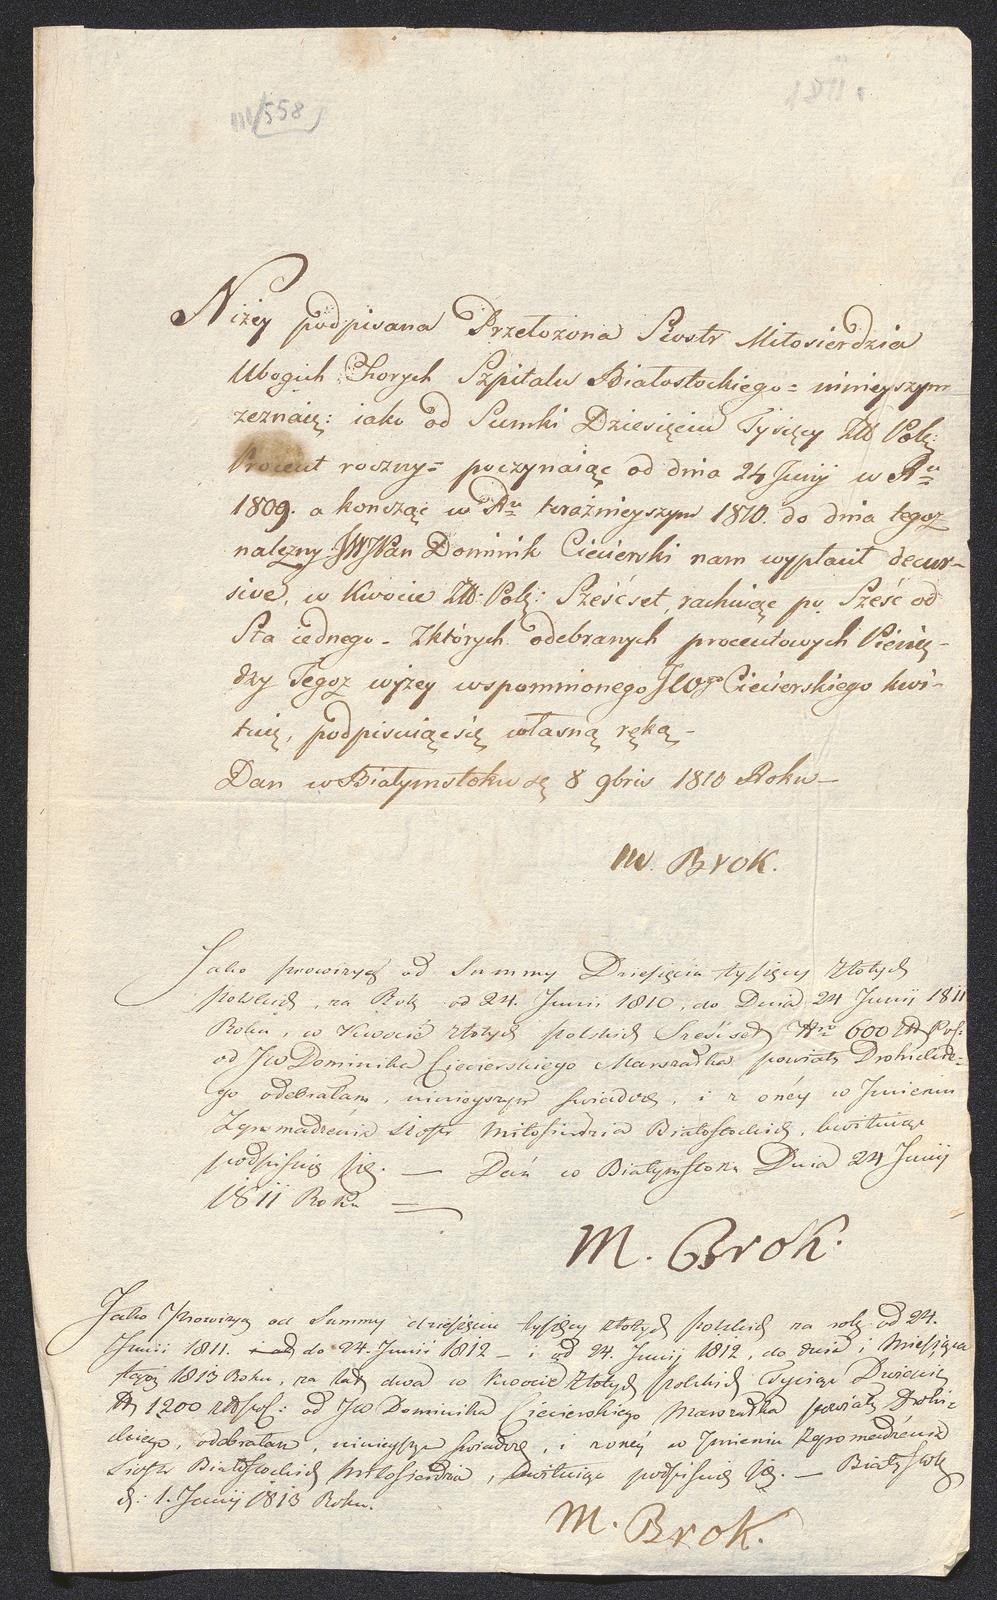 III/558
1811.
Niżey podpisana Przełożona Siostr Miłosierdzia
Ubogich Chorych Szpitalu Białostockiego = ninieyszym
zeznaię: iako od Summki Dziesięciu Tysięcy Złł Polę:
Procent roczny = poczynaiąc od dnia 24 Junij w Rü
1809. a konsząc w Rü teraźnieyszym 1810. do dnia tegoz
nalezny JWJPan Dominik Ciecierski nam wypłacił decur-
sive, w Kwocie Złł: Polę: Sześćset, rachuiąc po Sześć od
Sta iednego - Zktórych odebranych procentowych Pienię-
dzy Tegoz wyżey wspomnionego JWgo Ciecierskiego kwi-
tuię, podpisuiącsię własną ręką -
Dan w Białymstoku 8 9bris 1810 Roku -
M. Brok.
Jako prowizyą od Summy Dziesięciu tysięcy złotych
polskich, za Rok od 24. Junii 1810, do Dnia 24 Junij 1811
Roku, w Kwocie złotych polskich Sześćset 600 Pol:
od JW Dominika Ciecierskiego Marszałka powiatu Drohickie-
go odebrałam, ninieyszym świadczę, i z oney w Jmieniu
Zgromadzenia Siostr Miłosierdzia Białostockich, kwituiąc
podpisuię się. — Dań w Białymstoku Dnia 24 Junij
1811 Roku =
M. Brok.
Jako Prowizyą od Summy dziesięciu tysięcy złotych polskich za rok od 24.
Junii 1811. do 24. Junii 1812 - i od 24. Junij 1812, do dnia i Miesiąca
tegoż 1813 Roku, za lat dwa w Kwocie Złotych polskich Tysiąc Dwieście
1200 : od JW Dominika Ciecierskiego Marszałka powiatu Drohi-
ckiego, odebrałam, ninieysze świadczę, i z oney w Jmieniu Zgromadzenia
Siostr Białostockich Miłosierdzia, kwituiąc podpisuię się. — Białystok
d: 1. Junij 1813 Roku.
M. Brok.